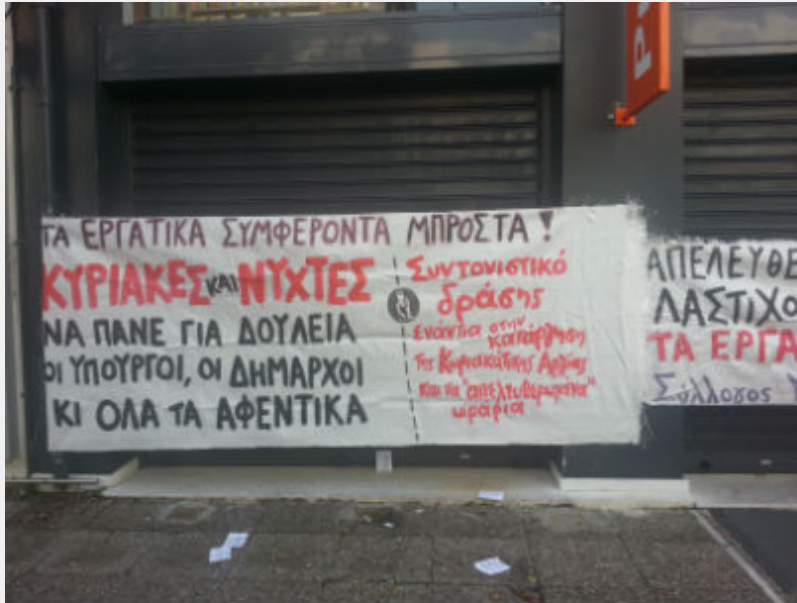 ΤΑ ΕΡΓΑΤΙΚΑ ΣΥΜΦΕΡΟΝΤΑ ΜΠΡΟΣΤΑ !
ΚΥΡΙΑΚΕΣ ΚΑΙ ΝΥΧΤΕΣ
ΝΑ ΠΑΝΕ ΓΙΑ ΔΟΥΛΕΙΑ
ΟΙ ΥΠΟΥΡΓΟΙ, ΟΙ ΔΗΜΑΡΧΟΙ
ΚΙ ΟΛΑ ΤΑ ΑΦΕΝΤΙΚΑ
Συντονιστικό
δράσης
Ενάντια στην
κατάργηση
της Κυριακάτικης Αργίας
και τα "απελευθερωμένα"
ωράρια
ΑΠΕΛΕΥΘΕ
ΛΑΣΤΙΧΟ
ΤΑ ΕΡΓΑ
Σύλλογος